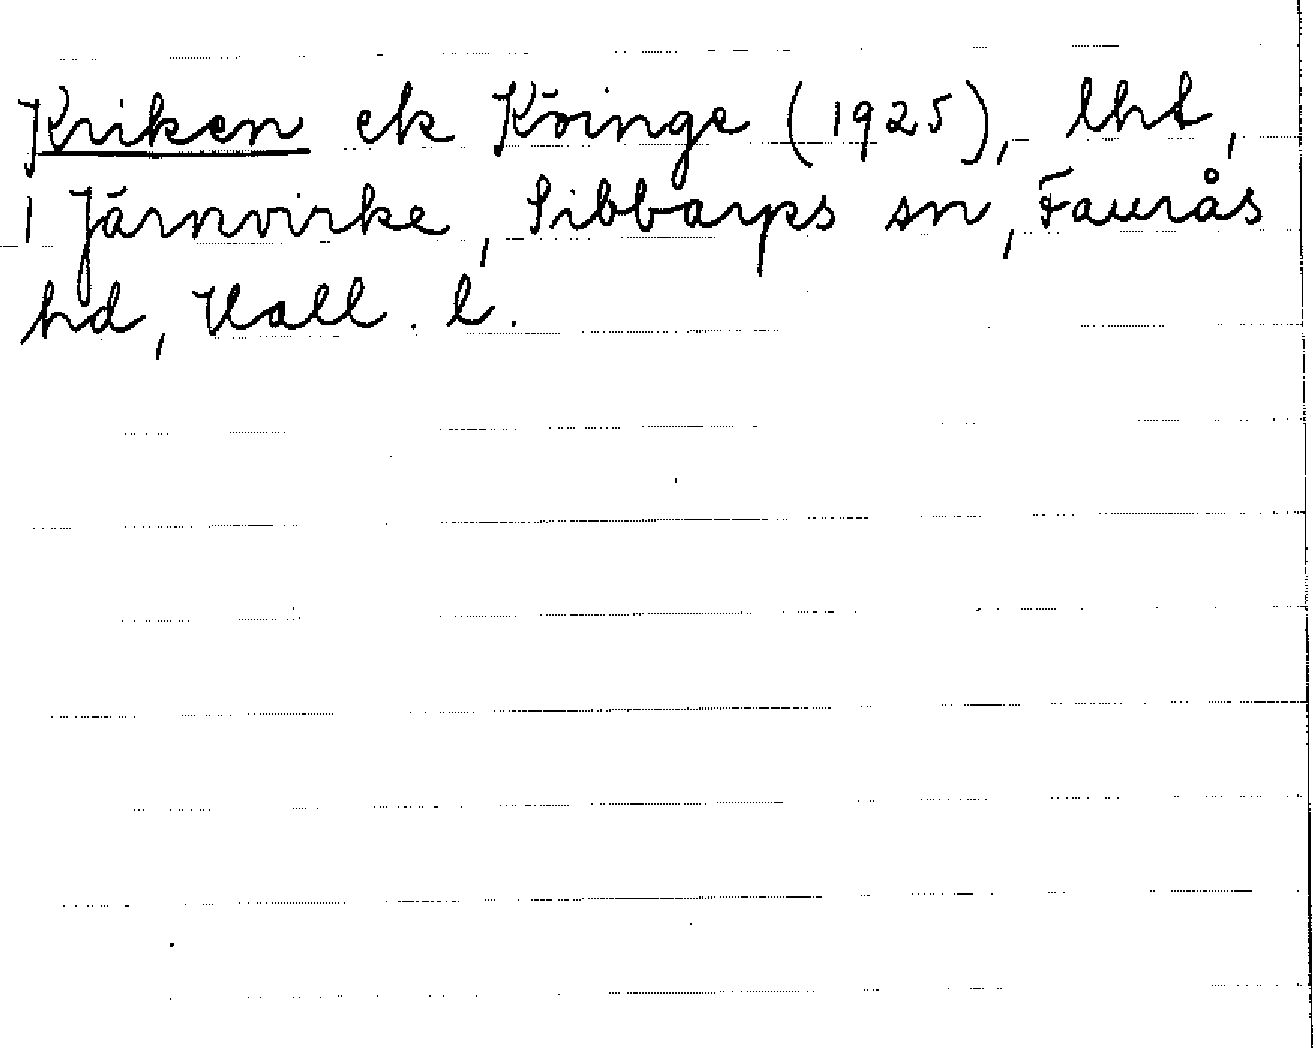 Kriken ek Köinge (1925), lht,
i Järnvirke, Sibbarps sn, Faurås
hd, Hall. l.